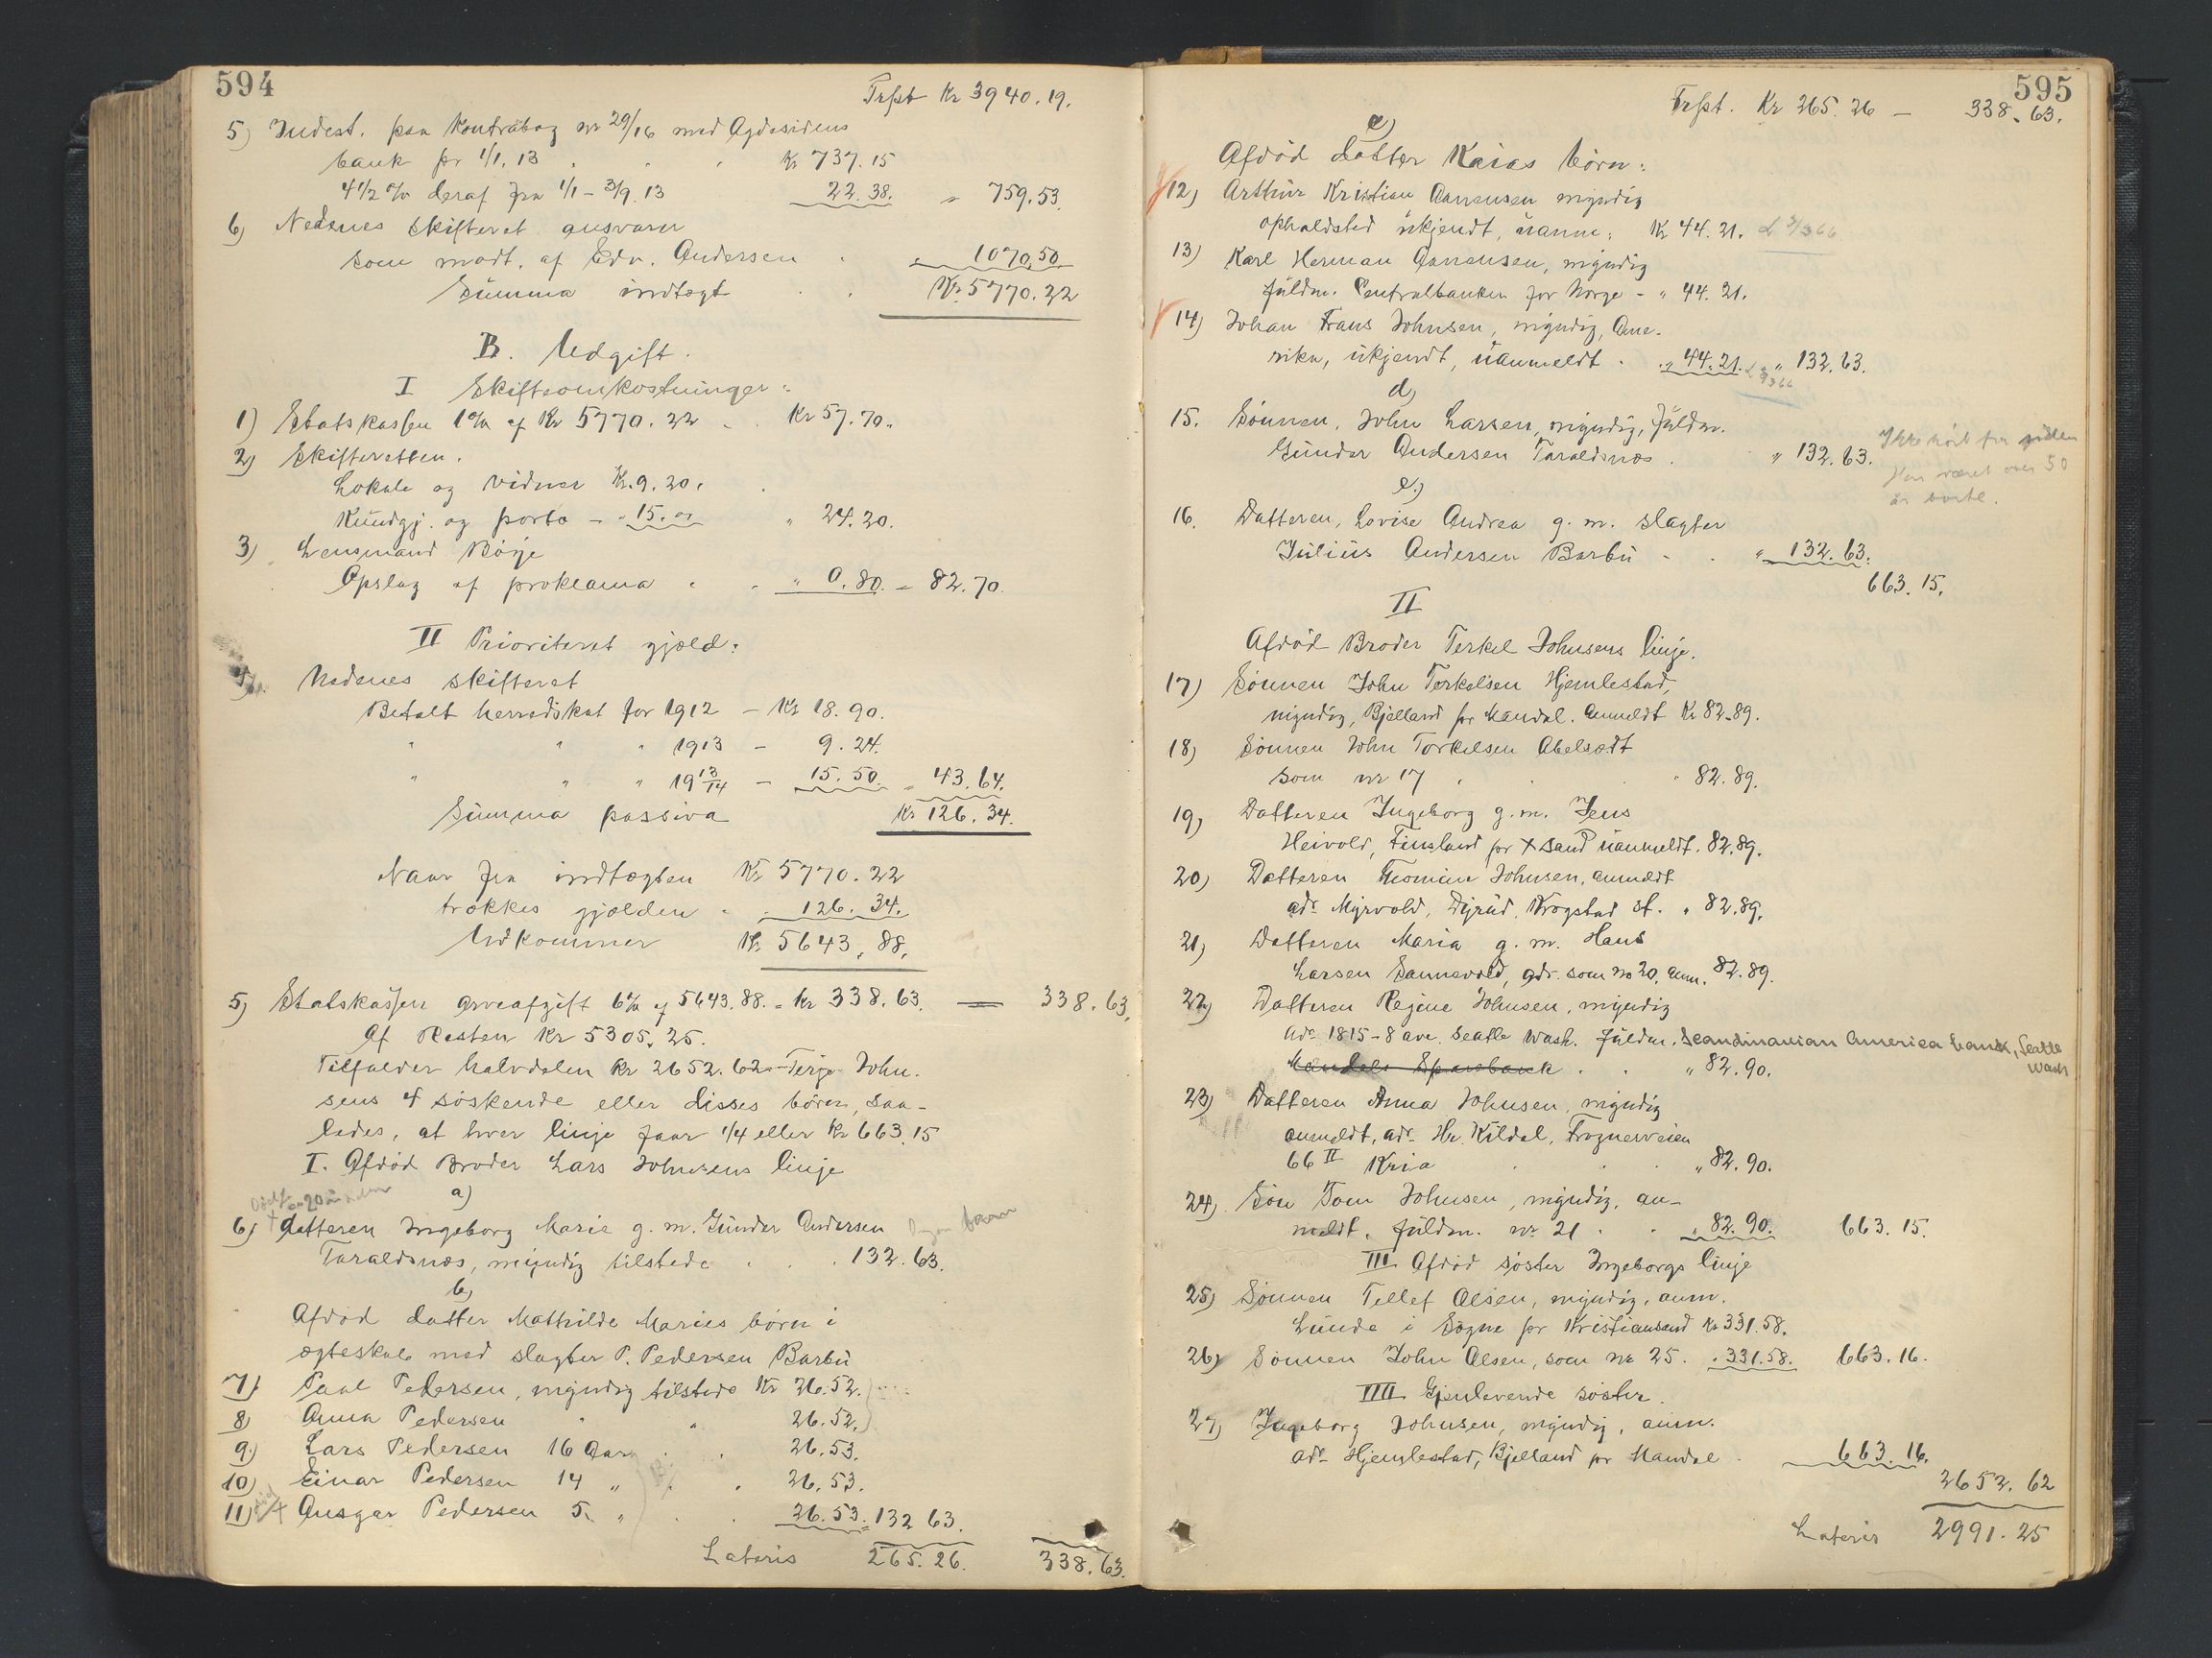 594
Trspt Kr 3940.19.
5) Indest. paa Kontrabog nr 29/16 med Agdesidens
bank pr 1/1. 13 . " , Kr 737.15
4 1/2 % deraf fra 1/1 - 3/9 13 22.38. " 759.53.
6) Nedenes skifteret ansvarer
som modt. af Edv. Andersen . " 1070.50
Summa indtægt . . Kr. 5770.22
B. Udgift.
I Skifteomkostninger:
1) Statskassen 1% af Kr 5770.22 . Kr 57.70.
2) Skifteretten.
Lokale og vidner Kr. 9.20. .
Kundgj. og porto - " 15.00 " 24.20.
3) Lensmand Börje
Opslag af proklama . . " 0.80. = 82.70
II Prioriteret gjæld:
4) Nedenes skifteret
Betalt herredskat for 1912 - Kr 18.90.
" " " 1913 - 9.24.
" " " 19 13/14 - 15.50. = 43.64.
Summa passiva Kr 126.34.
Naar fra indtægten Kr 5770.22
trækkes gjælden . " 126.34.
Udkommer Kr 5643.88.
5) Statskassen arveafgift 6% af 5643.88. = Kr 338.63. = 338.63.
Af Resten Kr 5305.25.
Tilfalder halvdelen Kr 2652.62 - Terje John-
sens 4 søskende eller disses børn, saa-
ledes, at hver linje faar 1/4 eller Kr 663.15
I. Afdød Broder Lars Johnsens linje
a)
Død for 20 år siden
6) † datteren Ingeborg Marie g. m. Gunder Andersen Ingen barn
Taraldsnæs, myndig tilstede . . . 132.63.
b)
Afdød datter Mathilde Maries børn i
ægteskab med slagter P. Pedersen Barbu
7) Paul Pedersen, myndig tilstede Kr 26.52.
8) Anna Pedersen " " 26.52.
9) Lars Pedersen 16 Aar . . 26.53.
10) Einar Pedersen 14 " . . 26.53.
11) død † Ansgar Pedersen 5. " . . 26.53. = 132 63.
Lateris 265.26. 338.63.
595
Trspt. Kr 265.26 - 338.63.
c)
Afdød datter Kaias børn:
12) Arthur Kristian Aanensen myndig
opholdsted ukjendt, uanm: Kr 44.21.
13) Karl Herman Aanensen, myndig
fuldm. Centralbanken for Norge - " 44.21.
14) Johan Frans Johnsen, myndig, Ame-
rika, ukjendt, uanmeldt . . " 44.21. " 132.63.
d)
15. Sønnen, John Larsen, myndig, fuldm.
Gunder Andersen Taraldsnæs . " 132.63.
Ikke hört fra siden
Har været over 50
år borte.
e.)
16. Datteren, Lovise Andrea g. m. slagter
Julius Andersen Barbu - . " 132.63.
663.15.
II
Afdød Broder Terkel Johnsens linje.
17) Sønnen John Terkelsen Hjemlestad,
myndig, Bjelland pr Mandal. Anmeldt Kr 82.89.
18) Sønnen John Torkelsen Abelsædt
som nr 17 . . " 82.89.
19) Datteren Ingeborg g. m. Jens
Heivold, Finsland pr X sand uanmeldt. 82.89.
20) Datteren Thomine Johnsen, anmeldt
adr. Myrvold, Dyrud, Krogstad st. " 82.89.
21) Datteren Maria g. m. Hans
Larsen Sannevold, adr. som no 20, anm. 82.89.
22) Datteren Regine Johnsen, myndig
adr 1815-8 ave. Seatle Wash. Fuldm. Scandinavian America bank, Seatle
Wash
Mandals Sparebank . . " 82.90.
23) Datteren Anna Johnsen, myndig
anmeldt, adr. Hr. Kildal, Frognerveien
66 II Kria . . . " 82.90.
24) Søn Tom Johnsen, myndig, an-
meldt. fuldm. nr. 21 . . " 82.90. 663.15.
III. Afdød søster Ingeborgs linje
25) Sønnen Tellef Olsen, myndig, anm.
Lunde i Søgne pr Kristiansand Kr 331.58.
26) Sønnen John Olsen, som nr 25. " 331.58. 663.16.
IIII. Gjenlevende søster.
27) Ingeborg Johnsen, myndig, anm.
adr. Hjemlestad, Bjelland pr Mandal . 663.16.
2652.62
Lateris 2991.25